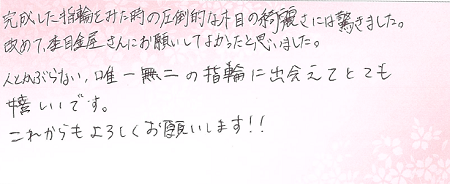 完成した指輪をみた時の圧倒的な木目の綺麗さには驚きました。
改めて、杢目金屋さんにお願いしてよかったと思いました。
人とかぶらない、唯一無二の指輪に出会えてとても
嬉しいです。
これからもよろしくお願いします!!